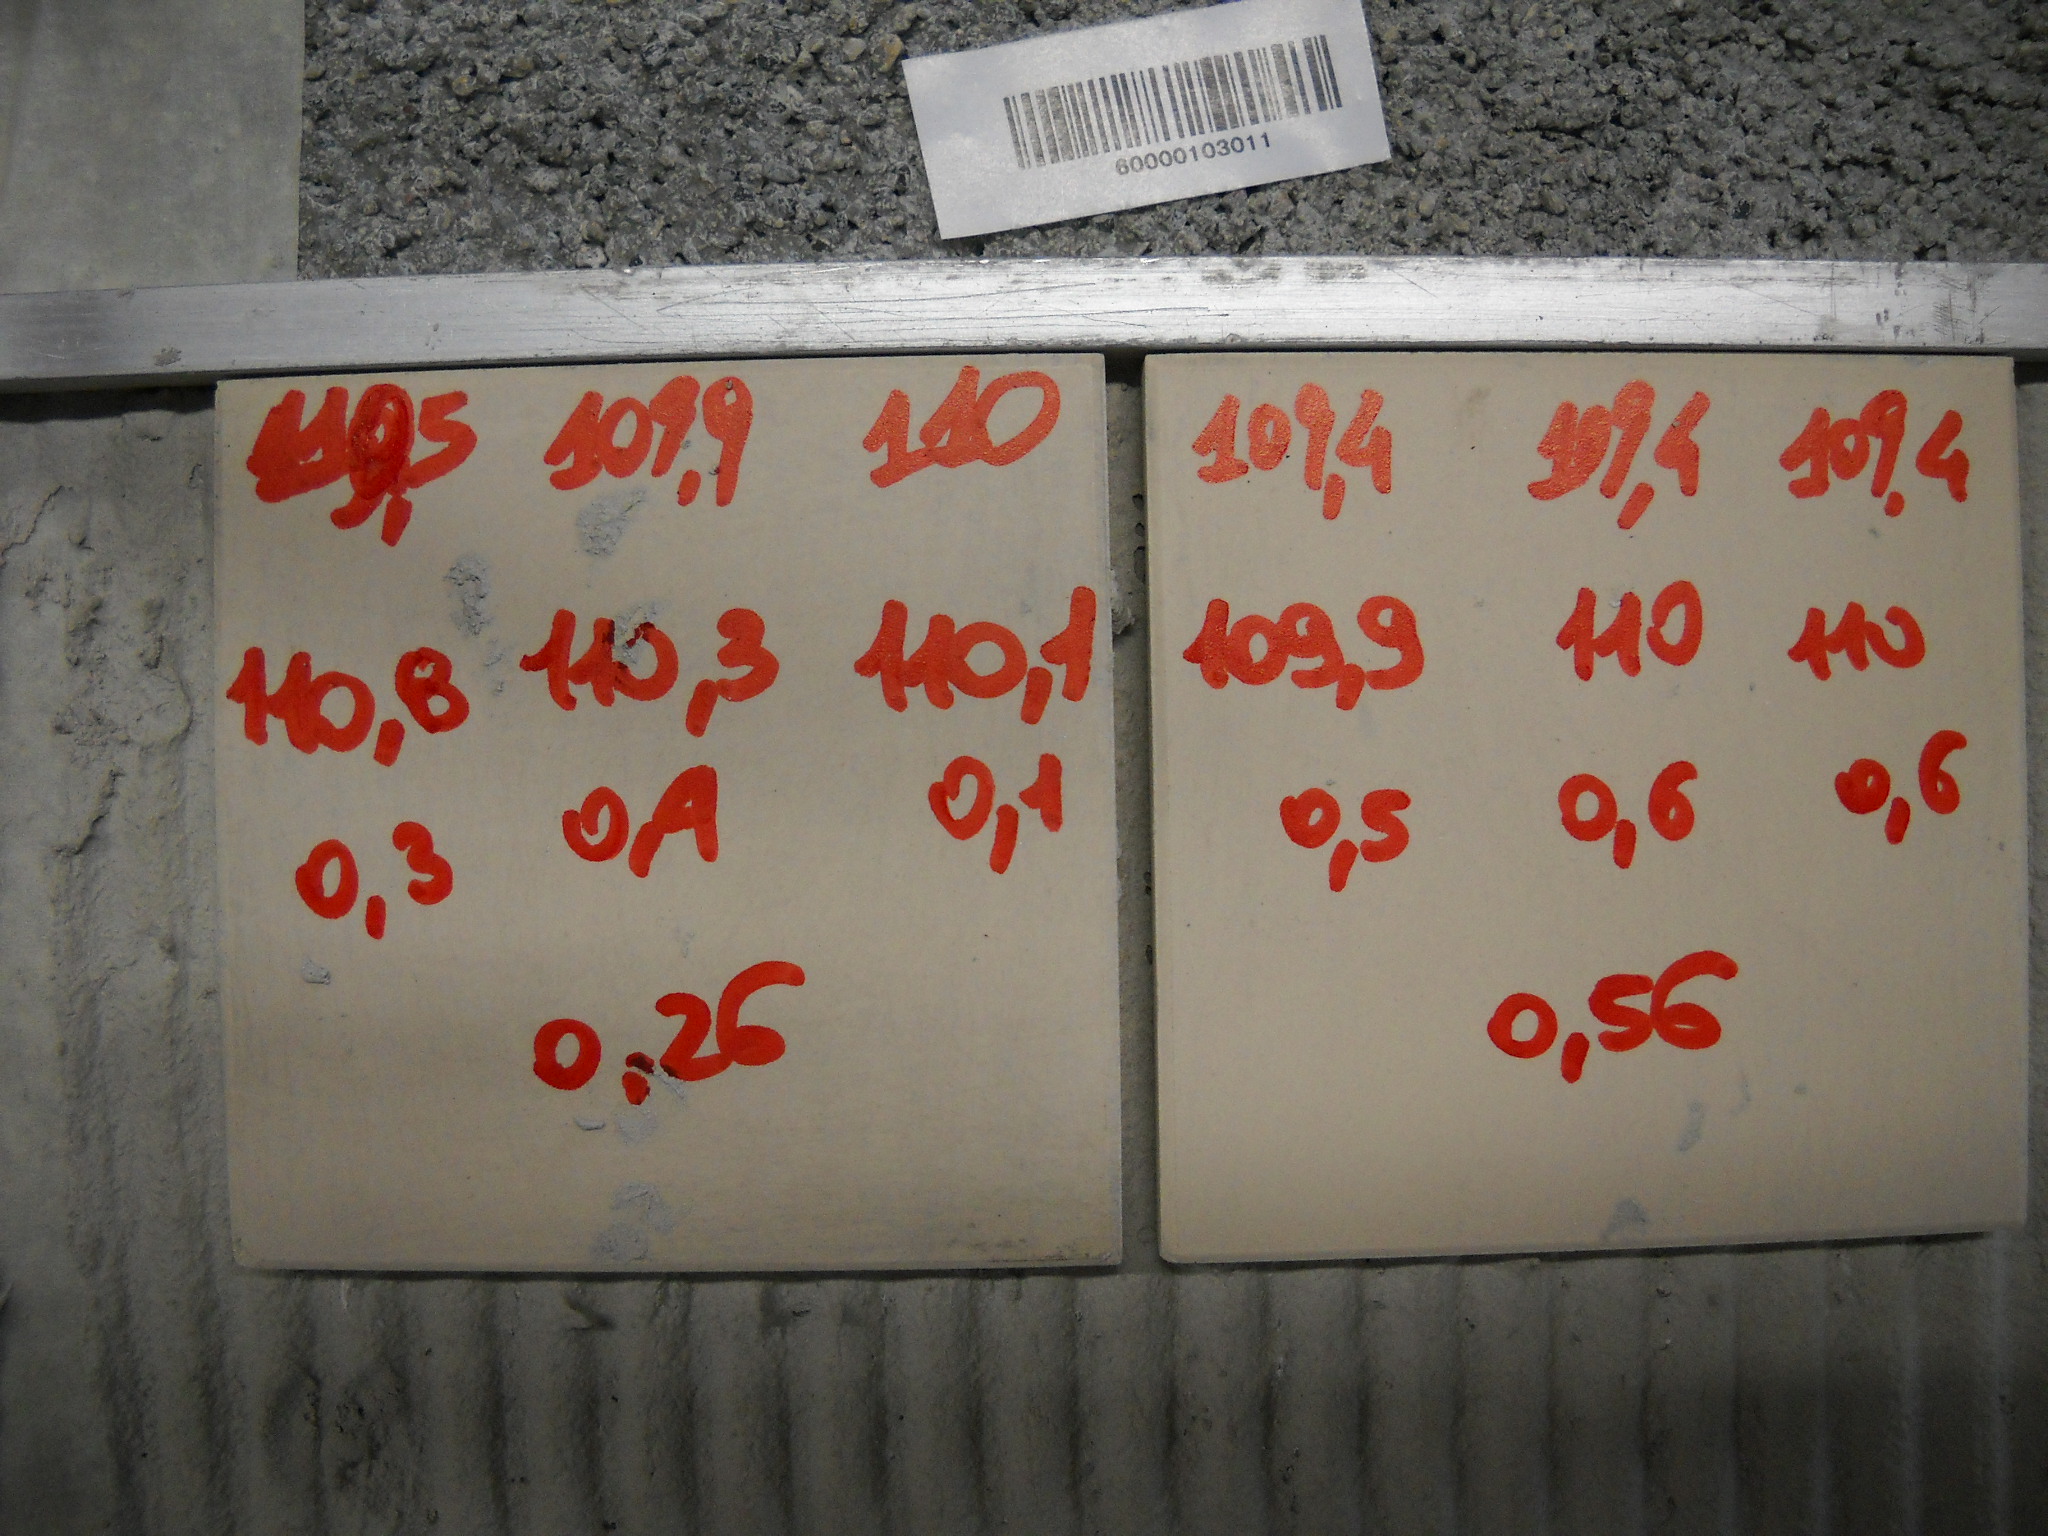 60000103011
110,5 109,9 110
110,8 110,3 110,1
0,3 0,4 0,1
0,26
109,4 109,4 109,4
109,9 110 110
0,5 0,6 0,6
0,56